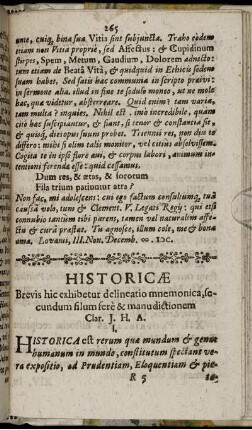 265
unte, cuiq, bina sua Vitis sint subjuncta. Traho eodem
etiam non Vitia propriè, sed Affectus: & Cupidinum
stirpes, Spem, Metum, Gaudium, Dolorem adnecto:
tum etiam de Beatâ Vitâ, & quidquid in Ethicis sedem
suam habet. Sed satis hæc communia in scripto praivi:
in sermone alia. illud in fine te sedulo moneo, ut ne mole
hac, qua videtur, absterreare. Quid enim? tam varia,
tam multa? inquies. Nihil est, imò incredibile, quàm
citò hæc suscipiantur, & siant, si tenor & constantia sit,
& quisq, dierum suum probet. Triennii res, non diu te
differo: mihi si elim talis monitor, vel citius absolvissem.
Cogita te in ipsi flore avi, & corpus labori, animum in-
tentioni ferenda esse: quid cessamus.
Dum res, & ætas, & sororum
Fila trium patiuntur atra?
Non fas, mi adolescens: cui ego factum consultumq, tuâ
causâ volo, tum & Clement. V. Legati Regij: qui etsi
connubio tantùm tibi parens, tamen vel naturalem affe-
ctu & curâ præstat. Tu agnosce, illum cole, me & bona
ama. Lovanii, III. Non. Decemb. ∞. IↃC.
HISTORICÆ
Brevis hic exhibetur delineatio mnemonica, se-
cundum filum ferè & manuductionem
Clar. J. H. A.
I.
HISTORICA est rerum quæ mundum & genus
humanum in mundo, constitutum spectant ve-
ra expositio, ad Prudentiam, Eloquentiam & pie-
R 5 ta-